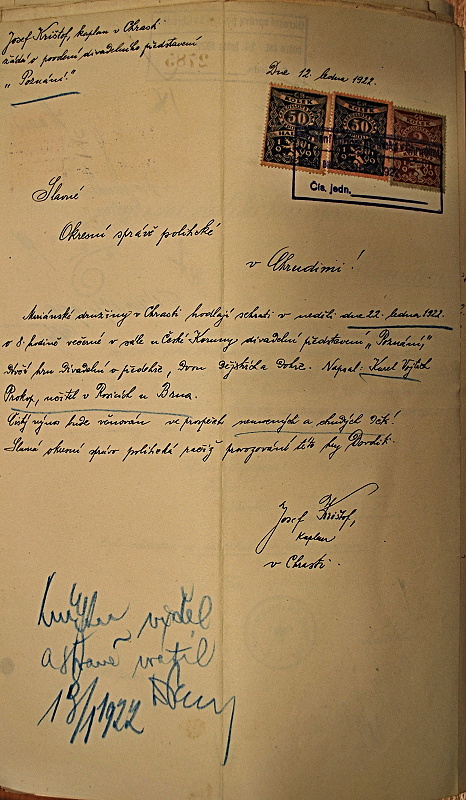 Josef Krištof, kaplan v Chrasti
žádá o povolení divadelního představení
„Poznání."
Dne 12. ledna 1922.
50
50
Čís. jedn.
Slavné
Okresní správě politické
v Chrudimi!
Mariánské družiny v Chrasti hodlají sehrati v neděli dne 22. ledna 1922.
o 8. hodině večerní v sále u České Koruny divadelní představení „Poznání,"
hru divadelní o předehře, dvou dějstvích a dohře. Napsal: Karel Vojtěch
Prokop, učitel v Rosicích u Brna.
Čistý výnos bude věnován ve prospěch nemocných a chudých dětí!
Slavná okresní správo politická račiž provozování této hry dovoliti.
Josef Krištof,
kaplan
v Chrasti.
vyděl
a vrátil
13/1 1922